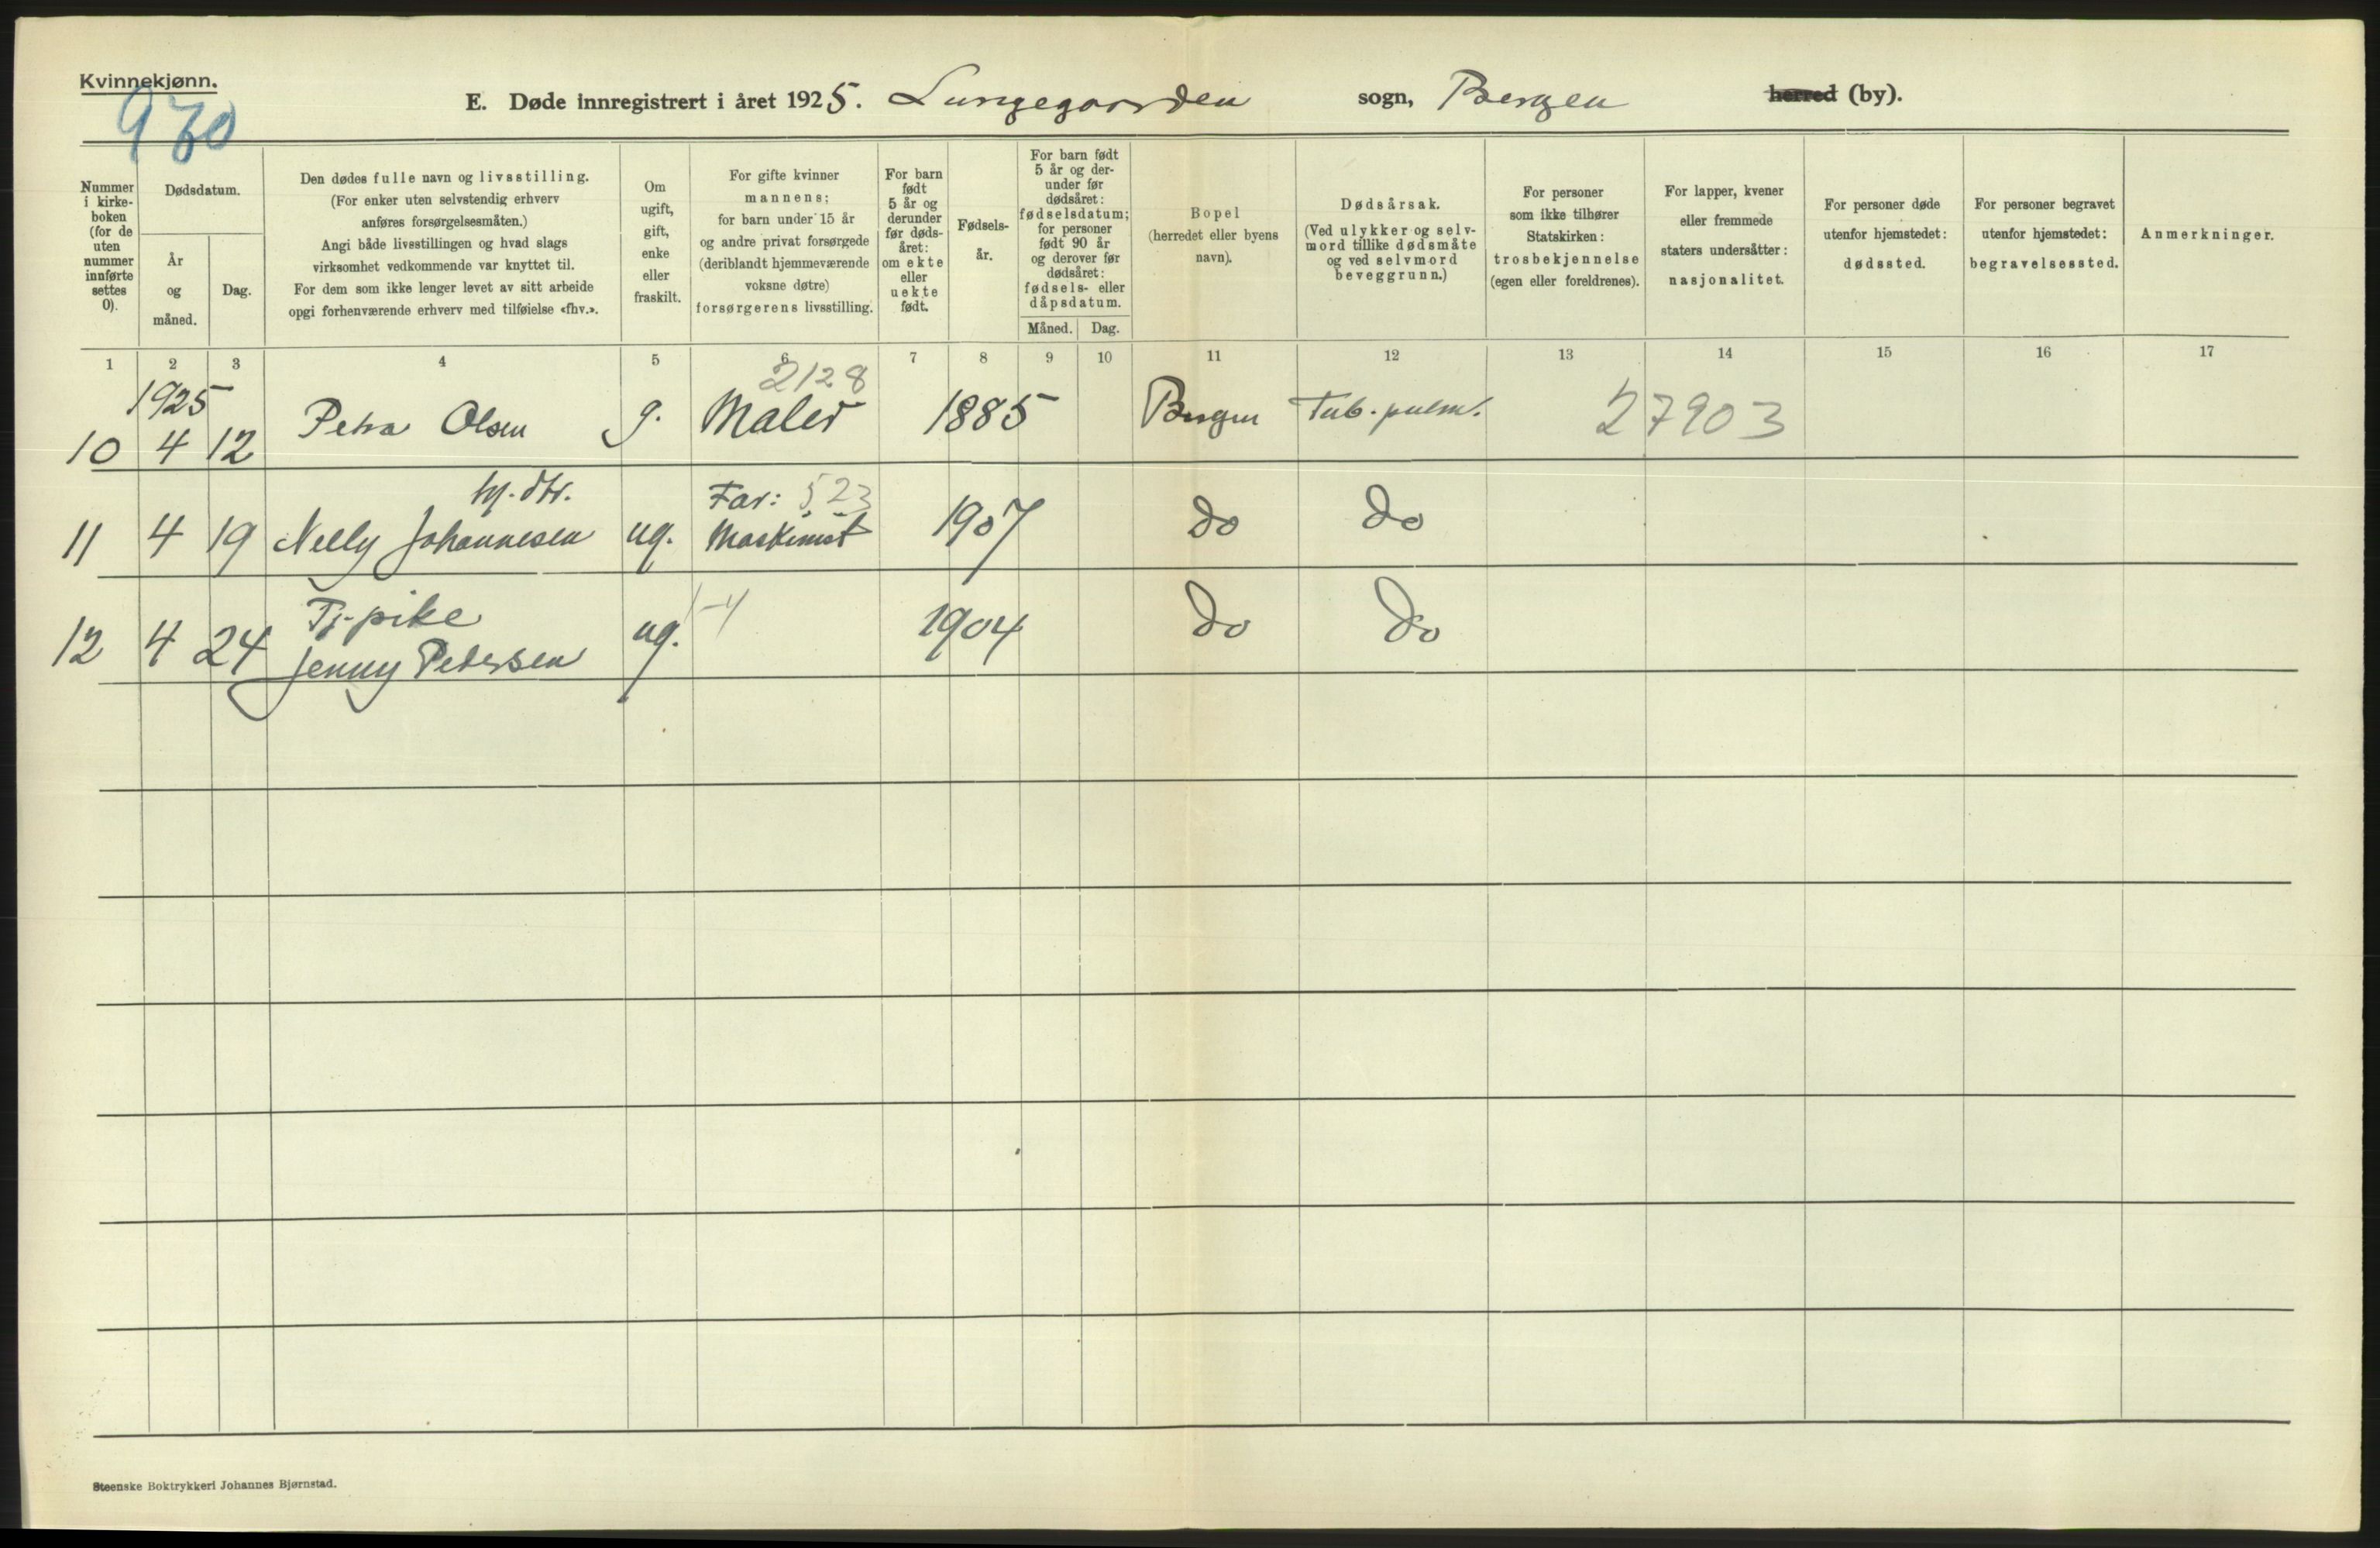 Kvinnekjønn.
E. Døde innregistrert i året 1925. Lungegaarden sogn, Bergen herred (by).
Nummer i kirke-boken (for de uten nummer innførte settes 0).
Dødsdatum.
År og måned.
Dag.
Den dødes fulle navn og livsstilling.
(For enker uten selvstendig erhverv
anføres forsørgelsesmåten.)
Angi både livsstillingen og hvad slags
virksomhet vedkommende var knyttet til.
For dem som ikke lenger levet av sitt arbeide
opgi forhenværende erhverv med tilføielse «fhv.».
Om
ugift,
gift,
enke
eller
fraskilt.
For gifte kvinner
mannens;
for barn under 15 år
og andre privat forsørgede
(deriblandt hjemmeværende
voksne døtre)
forsørgerens livsstilling.
For barn
født
5 år og
derunder
før døds-
året:
om ekte
eller
uekte
født.
Fødsels-
år.
For barn født
5 år og der-
under før
dødsåret:
fødselsdatum;
for personer
født 90 år
og derover før
dødsåret:
fødsels- eller
dåpsdatum.
Måned. Dag.
Bopel
(herredet eller byens
navn).
Dødsårsak.
(Ved ulykker og selv-
mord tillike dødsmåte
og ved selvmord
beveggrunn.)
For personer
som ikke tilhører
Statskirken:
trosbekjennelse
(egen eller foreldrenes).
For lapper, kvener
eller fremmede
staters undersåtter:
nasjonalitet.
For personer døde
utenfor hjemstedet:
dødssted.
For personer begravet
utenfor hjemstedet:
begravelsessted.
Anmerkninger.
1 2 3 4 5 6 7 8 9 10 11 12 13 14 15 16 17
1925 2128
10 4 12 Petra Olsen g. Maler 1885 Bergen Tub. pulm. 27903
hj. dtr. Far: 523
11 4 19 Nelly Johannesen ug. Maskinist 1907 do do
Tj.pike
12 4 24 Jenny Pedersen ug. 1904 do do
Steenske Boktrykkeri Johannes Bjørnstad.